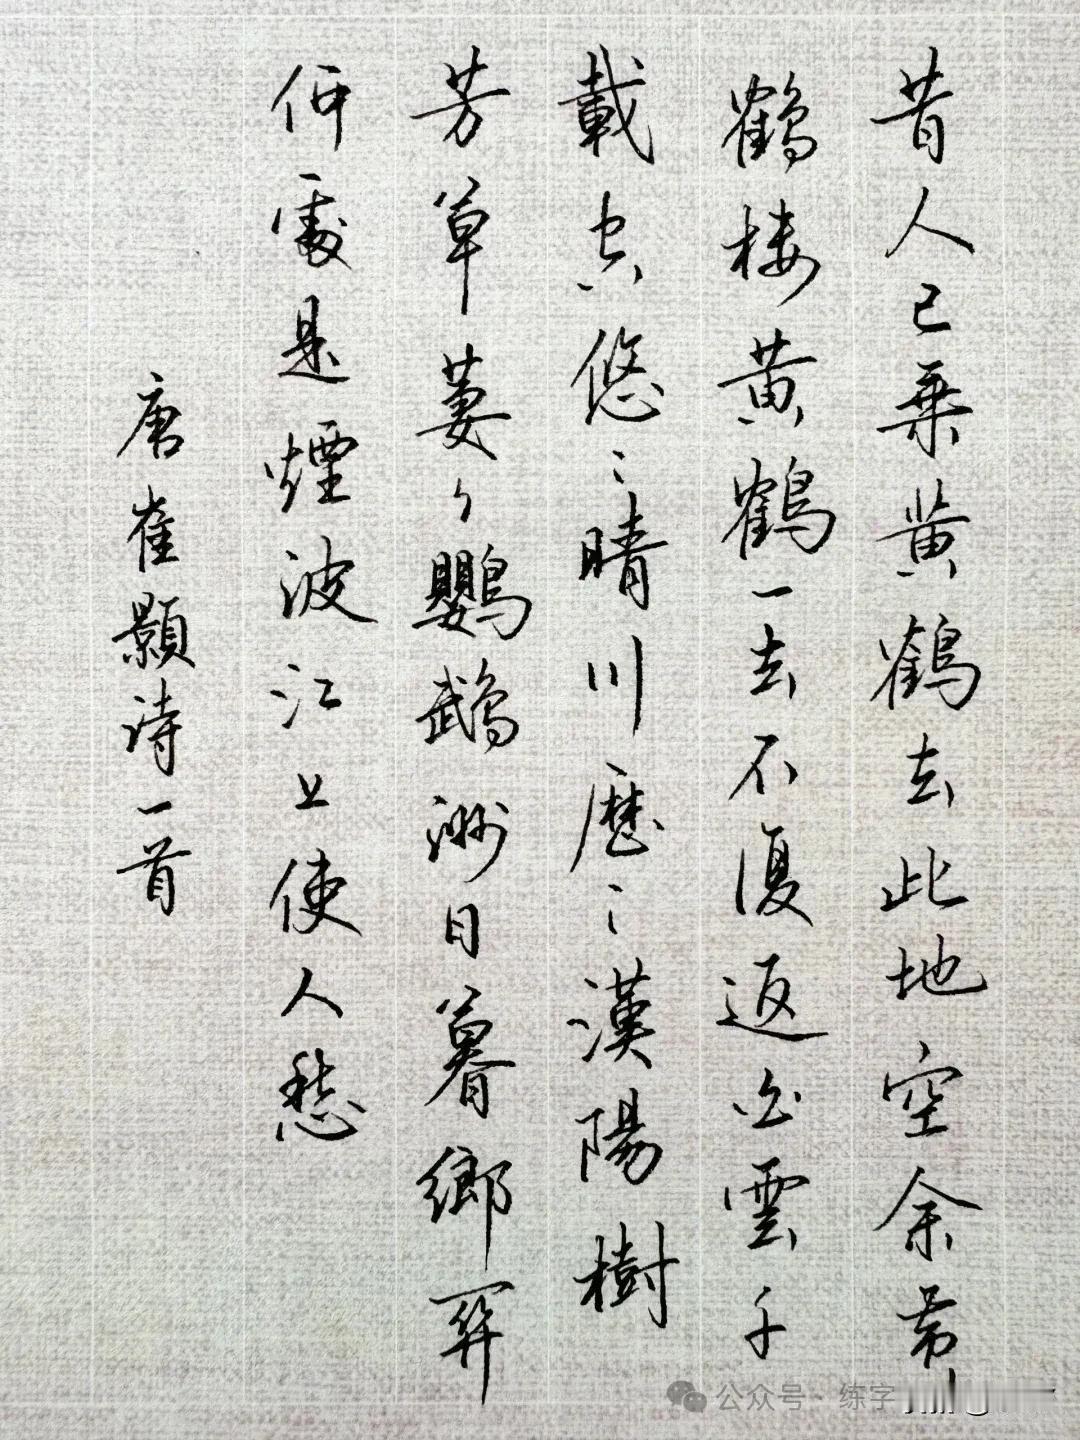 昔人已乘黄鶴去此地空余黄
鶴楼黄鶴一去不復返白雲千
載空悠〻晴川歷〻漢陽樹
芳草萋〻鸚鵡洲日暮鄉関
何處是煙波江上使人愁
唐崔顥诗一首
公众号·练字